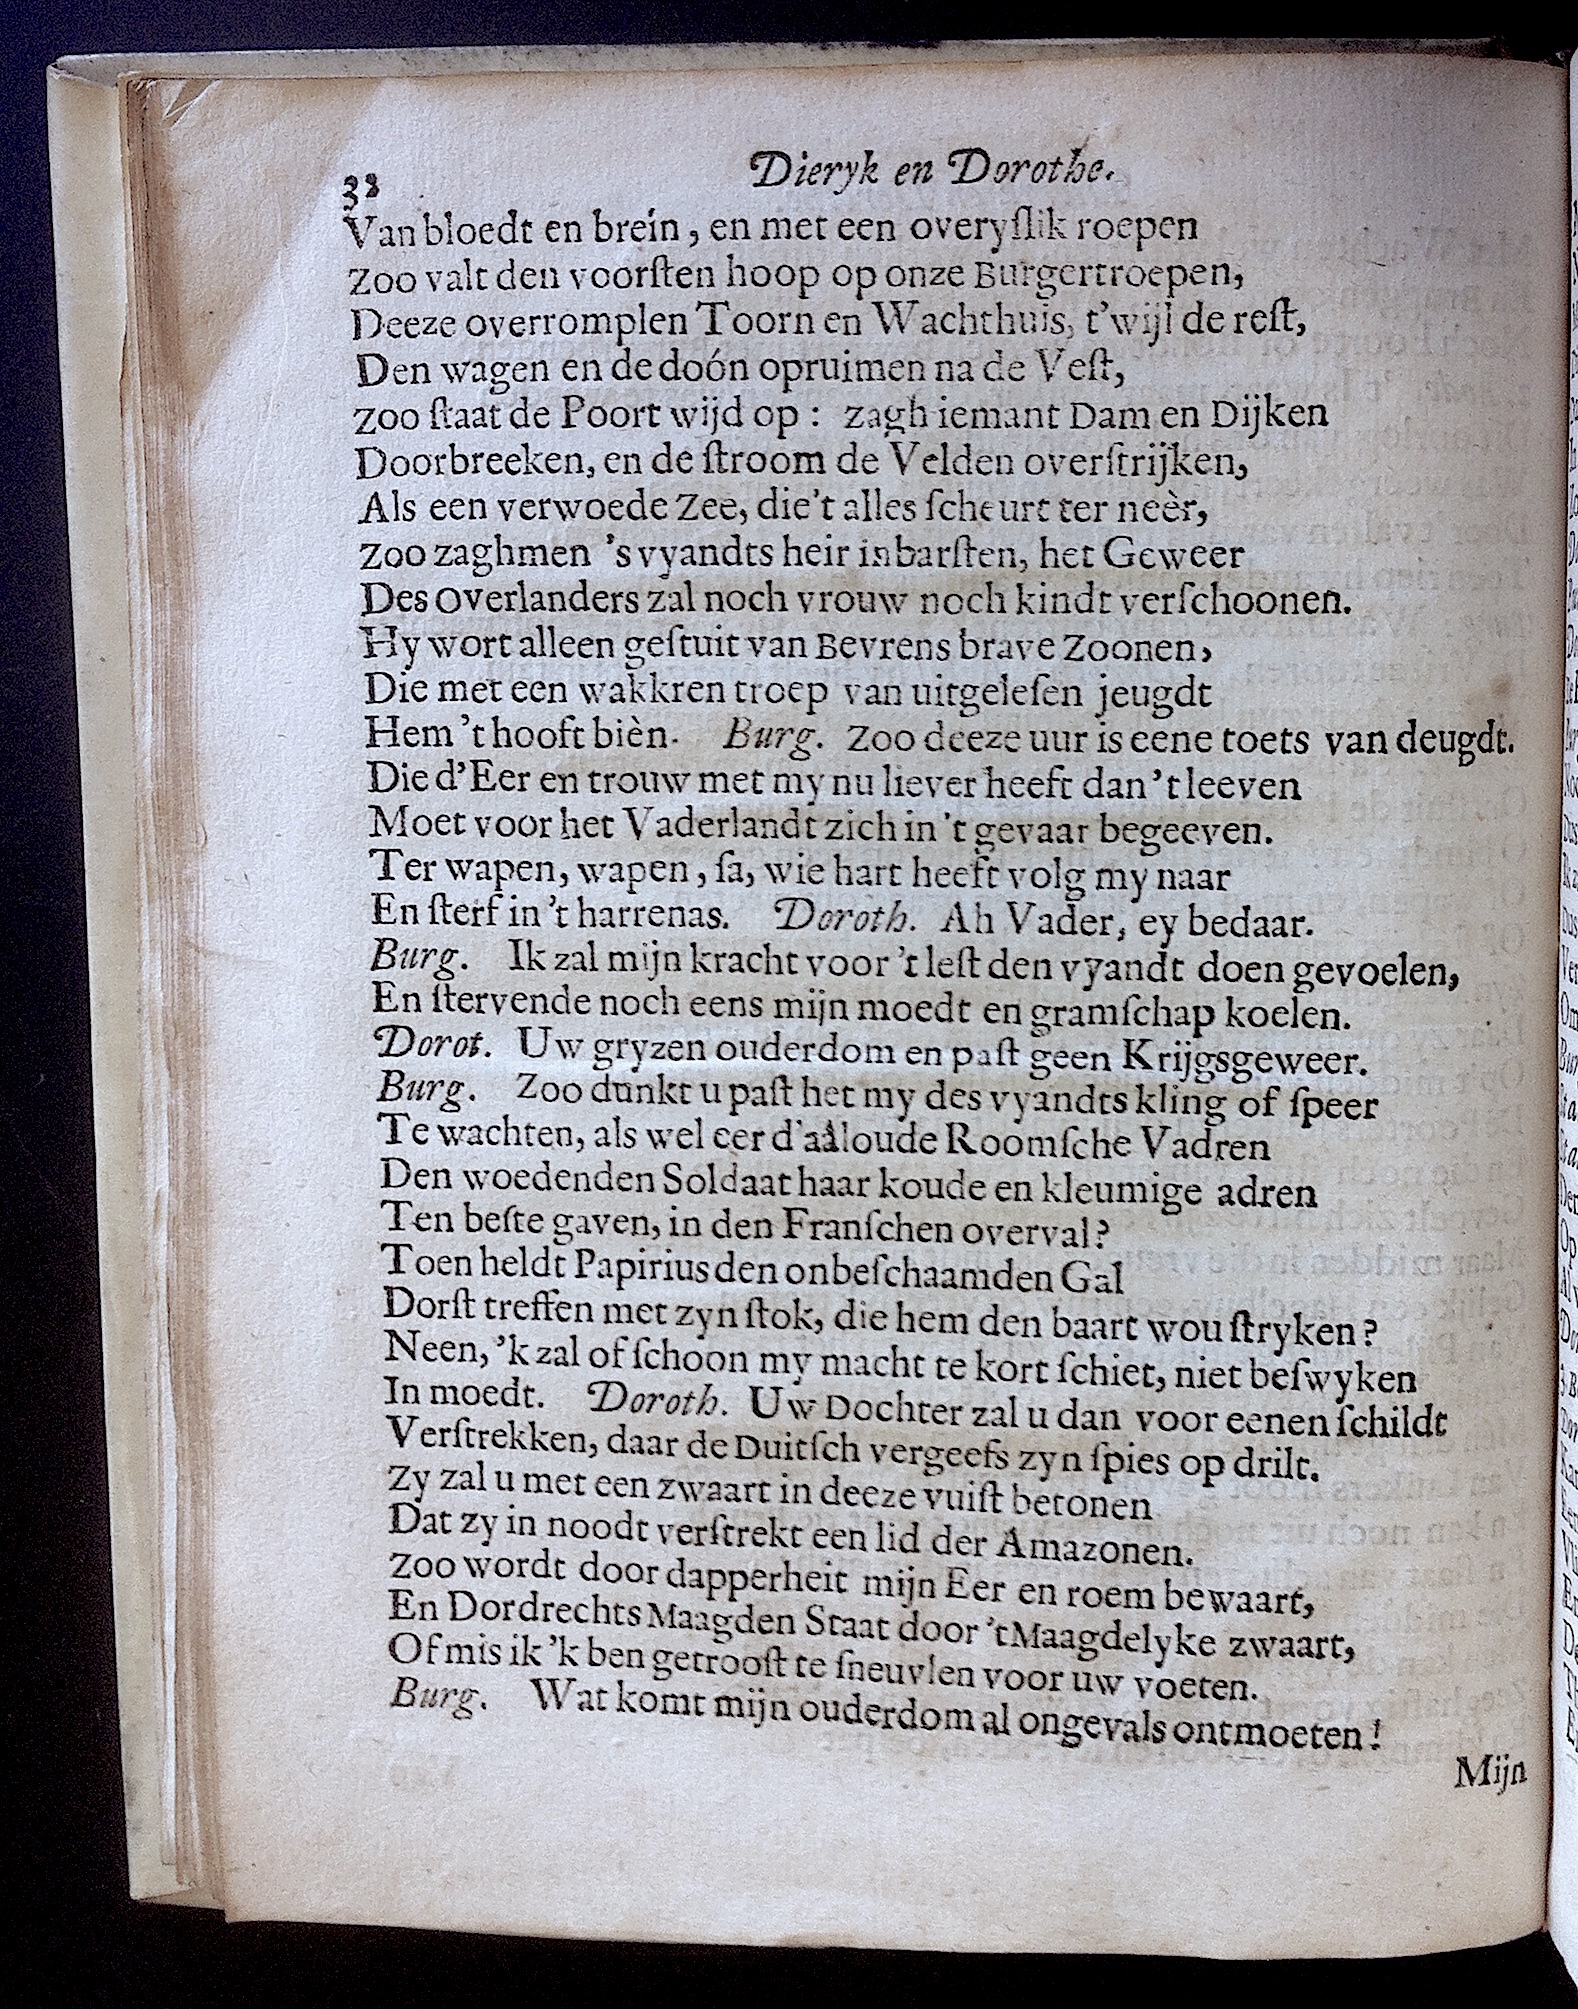 38 Dieryk en Dorothe.
Van bloedt en brein, en met een overyſlik roepen
Zoo valt den voorſten hoop op onze Burgertroepen,
Deeze overromplen Toorn en Wachthuis, t'wijl de reſt,
Den wagen en de doón opruimen na de Veſt,
Zoo ſtaat de Poort wijd op: zagh iemant Dam en Dijken
Doorbreeken, en de ſtroom de Velden overſtrijken,
Als een verwoede Zee, die't alles ſcheurt ter neèr,
Zoo zaghmen 's vyandts heir inbarſten, het Geweer
Des Overlanders zal noch vrouw noch kindt verſchoonen.
Hy wort alleen geſtuit van Bevrens brave Zoonen,
Die met een wakkren troep van uitgeleſen jeugdt
Hem 't hooft bièn. Burg. Zoo deeze uur is eene toets van deugdt.
Die d'Eer en trouw met my nu liever heeft dan 't leeven
Moet voor het Vaderlandt zich in 't gevaar begeeven.
Ter wapen, wapen, ſa, wie hart heeft volg my naar
En ſterf in 't harrenas. Doroth. Ah Vader, ey bedaar.
Burg. Ik zal mijn kracht voor 't leſt den vyandt doen gevoelen,
En ſtervende noch eens mijn moedt en gramſchap koelen.
Dorot. Uw gryzen ouderdom en paſt geen Krijgsgeweer.
Burg. Zoo dunkt u paſt het my des vyandts kling of ſpeer
Te wachten, als wel eer d'aâloude Roomſche Vadren
Den woedenden Soldaat haar koude en kleumige adren
Ten beſte gaven, in den Franſchen overval?
Toen heldt Papirius den onbeſchaamden Gal
Dorſt treffen met zyn ſtok, die hem den baart wou ſtryken?
Neen, 'k zal of ſchoon my macht te kort ſchiet, niet beſwyken
In moedt. Doroth. Uw Dochter zal u dan voor eenen ſchildt
Verſtrekken, daar de Duitſch vergeefs zyn ſpies op drilt.
Zy zal u met een zwaart in deeze vuiſt betonen
Dat zy in noodt verſtrekt een lid der Amazonen.
Zoo wordt door dapperheit mijn Eer en roem bewaart,
En Dordrechts Maagden Staat door 't Maagdelyke zwaart,
Of mis ik 'k ben getrooſt te ſneuvlen voor uw voeten.
Burg. Wat komt mijn ouderdom al ongevals ontmoeten!
Mijn